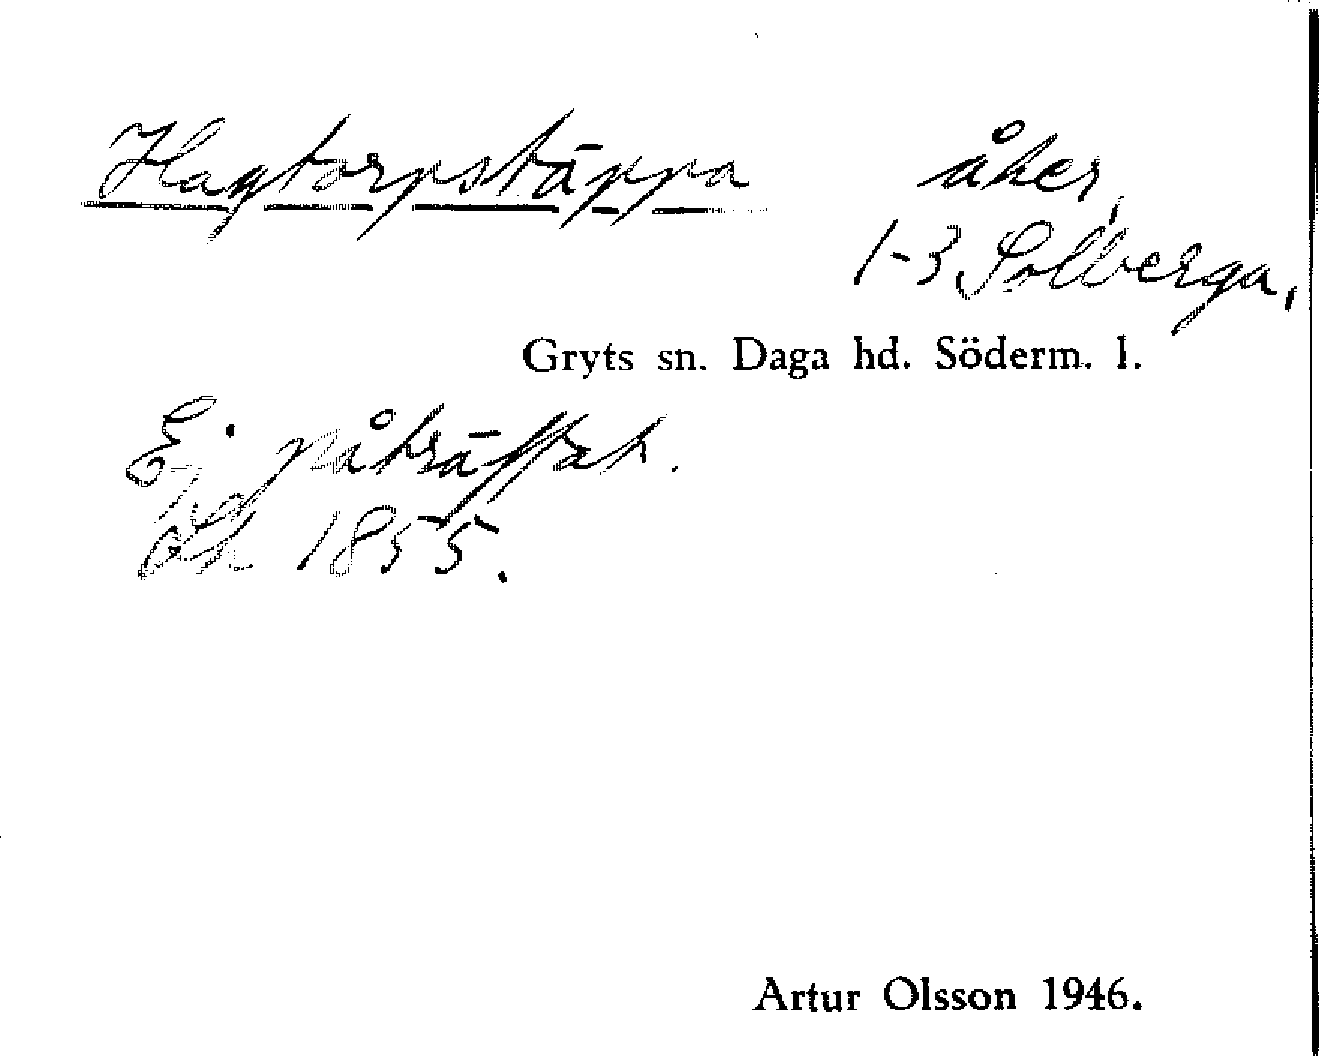 Hagtorpstäppa åker,
1-3 Solberga,
Gryts sn. Daga hd. Söderm. l.
Ej påträffat.
ek 1855.
Artur Olsson 1946.